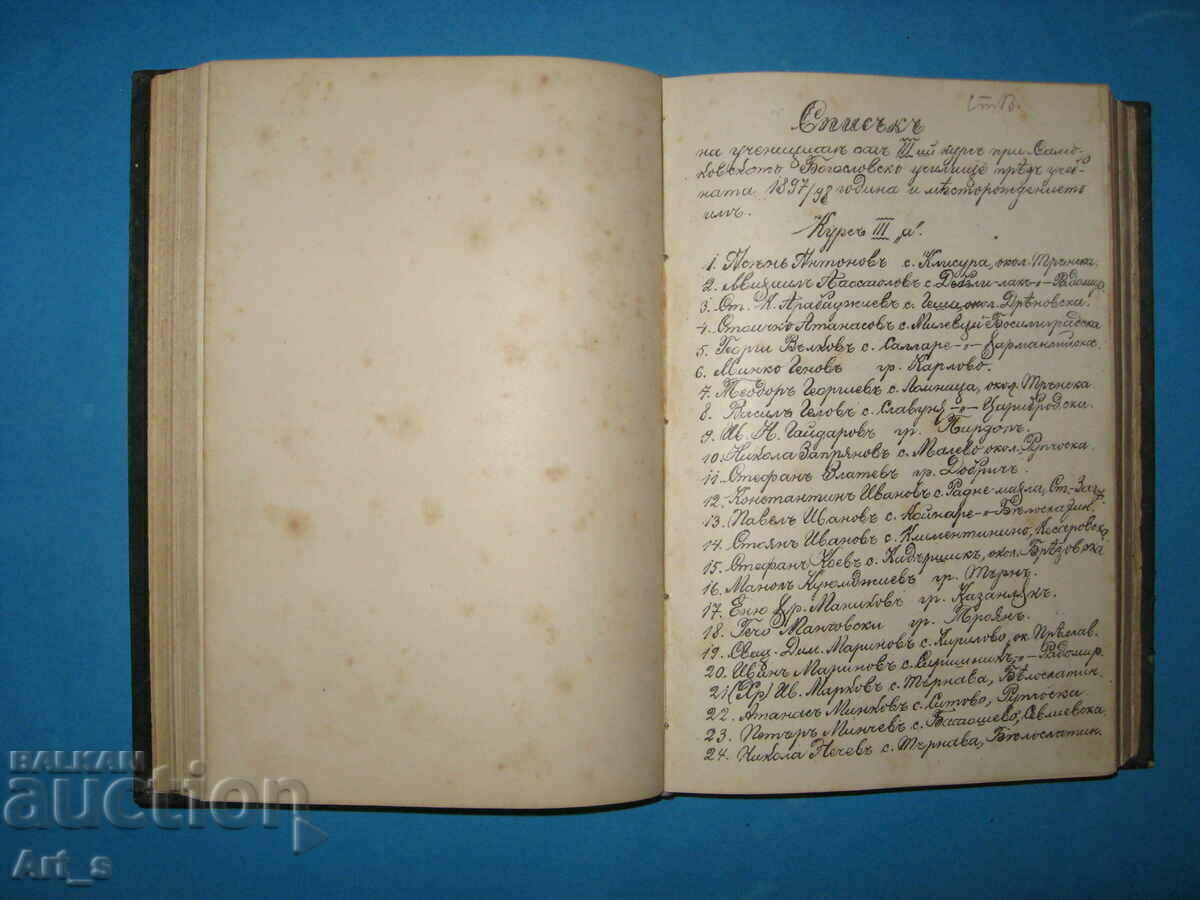 Списъкъ
на ученицитѣ отъ III ий курсъ при Само-
ковското Богословско училище прѣзъ учеб-
ната 1897/98 година и мѣсторождението
имъ.
Курсъ III „а“.
1. Асѣнь Антоновъ с. Клисура, окол. Трънска.
2. с. -„- Радомир.
3. Ст. К. Арабаджиевъ с. окол. Дрѣновска.
4. Стоичко Атанасовъ с. Милевци Босилиградска
5. Георги Вълковъ с. -„- Харманлийска.
6. Минко Геновъ гр. Карлово.
7. Теодоръ Георгиевъ с. Ломница, окол. Трънска
8. Василъ Геловъ с. Славуня -„- Царибродска.
9. Ив. Н. Гайдаровъ гр. Пирдопъ.
10. Никола Запряновъ с. Малево окол. Рупчоска.
11. Стефанъ Златевъ гр. Добричъ.
12. Константинъ Ивановъ с. Радне-махла, Ст.-Заг.
13. Павелъ Ивановъ с. Койнаре -„- Бѣлослатин.
14. Стоянъ Ивановъ с. Климентинино, Кесаровска
15. Стефанъ Коевъ с. окол. Брѣзовска
16. Маноилъ Куюмджиевъ гр. Търнъ.
17. Еню Хр. Маниковъ гр. Казанлякъ.
18. Гечо Манчовски гр. Троянъ.
19. Свящ. Дим. Мариновъ с. Кирилово, ок. Прѣслав.
20. Иванъ Мариновъ с. Сирищникъ, -„- Радомир.
21 (Хр) Ив. Марковъ с. Търнава, Бѣлослатин.
22. Атанасъ Минковъ с. Ситово, Рупчоска
23. Петъръ Минчевъ с. Севлиевска.
24. Никола Нечевъ с. Търнава, Бѣлослатин.
BALKAN
auction
Art_s